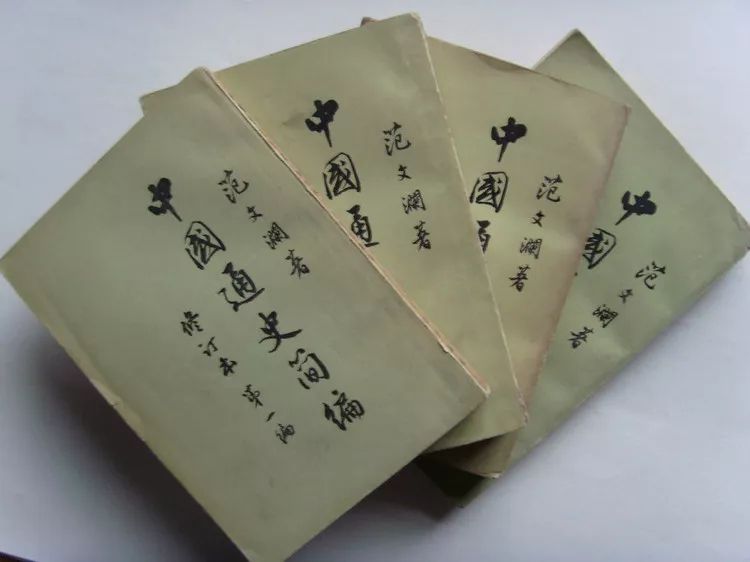 范文瀾著
中國通史简编
修订本 第一编
范文瀾著
中國通
范文瀾著
中國通
范文瀾著
中國